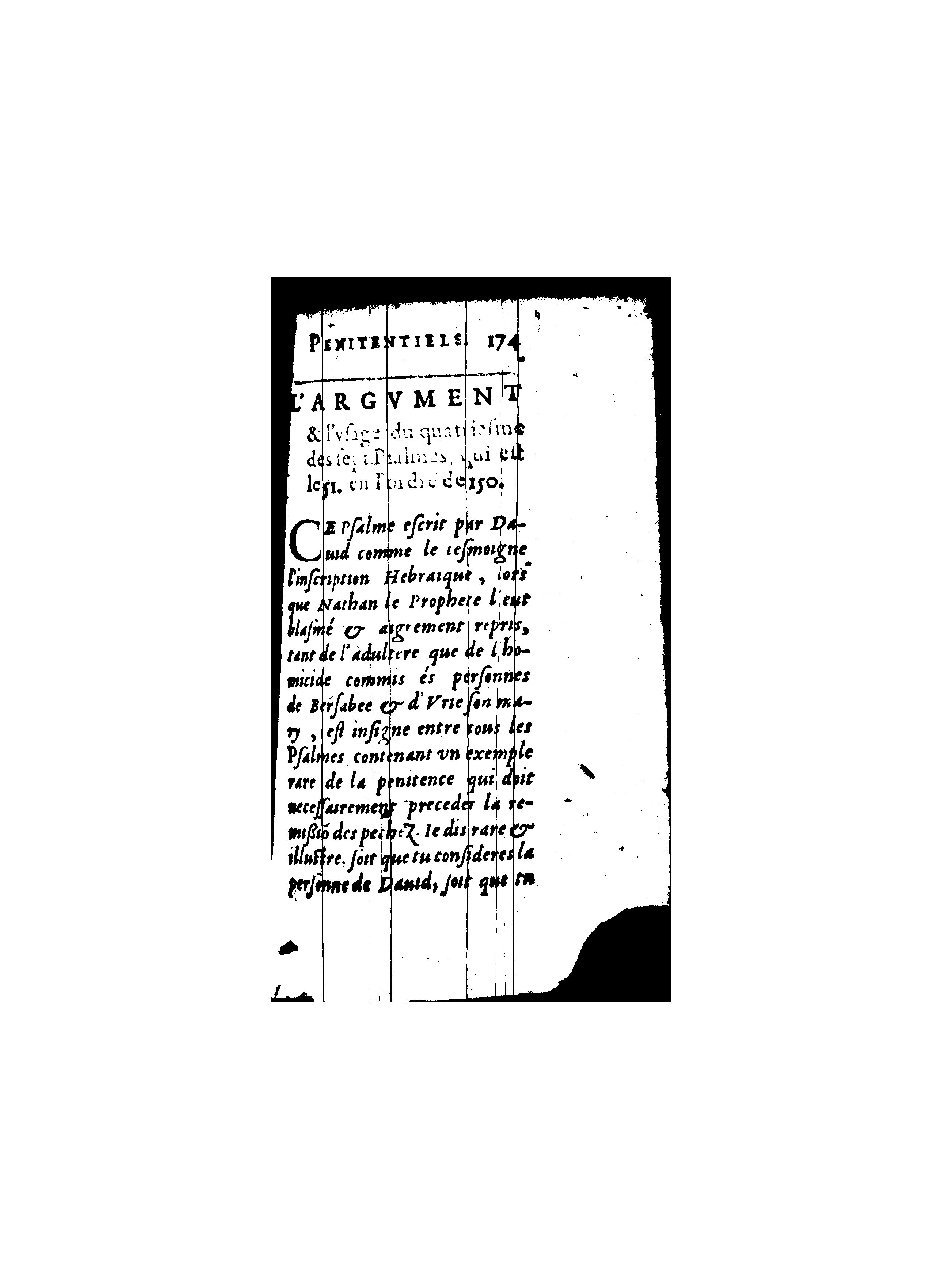 PENITENTIELS. 174
L'ARGVMENT
& l'vsage du quatriesme
des sept Psalmes, qui est
le 51. en l'ordre de 150.
CE Psalme escrit par Da-
uid comme le tesmoigne
l'inscription Hebraique, lors
que Nathan le Prophete l'eut
blasmé & aigrement repris,
tant de l'adultere que de l'ho-
micide commis és personnes
de Bersabee & d'Vrie son ma-
ry, est insigne entre tous les
Psalmes contenant vn exemple
rare de la penitence qui doit
necessairement preceder la re-
missiō des pechez. Ie dis rare &
illustre, soit que tu consideres la
personne de Dauid, soit que tu